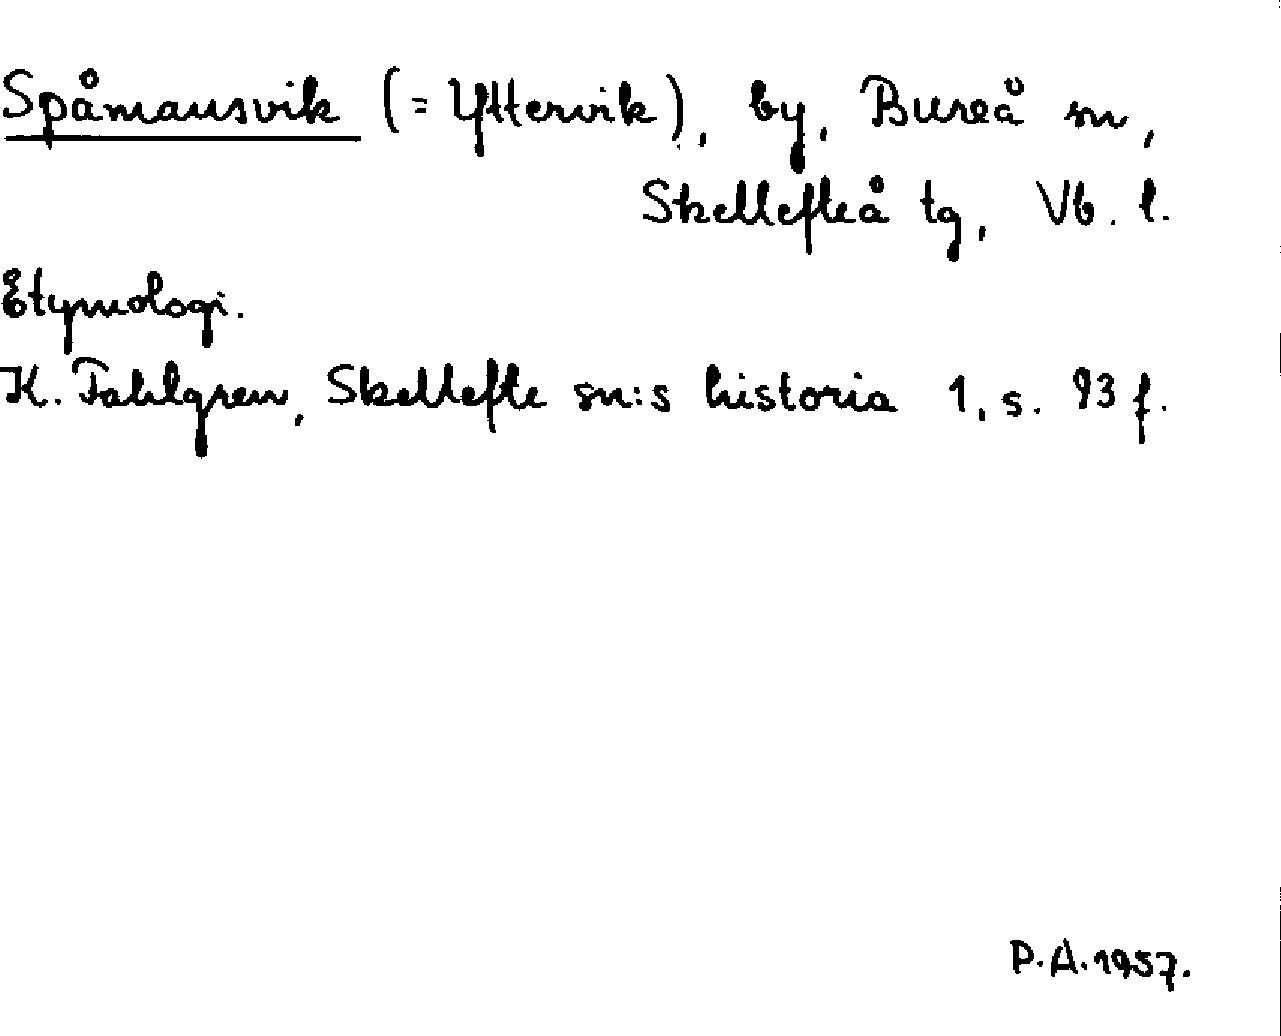 Spåmansvik (= Yttervik), by, Bureå sn,
Skellefteå tg, Vb. l.
Etymologi.
K. Fahlgren, Skellefte sn:s historia 1, s. 93 f.
P.A. 1957.